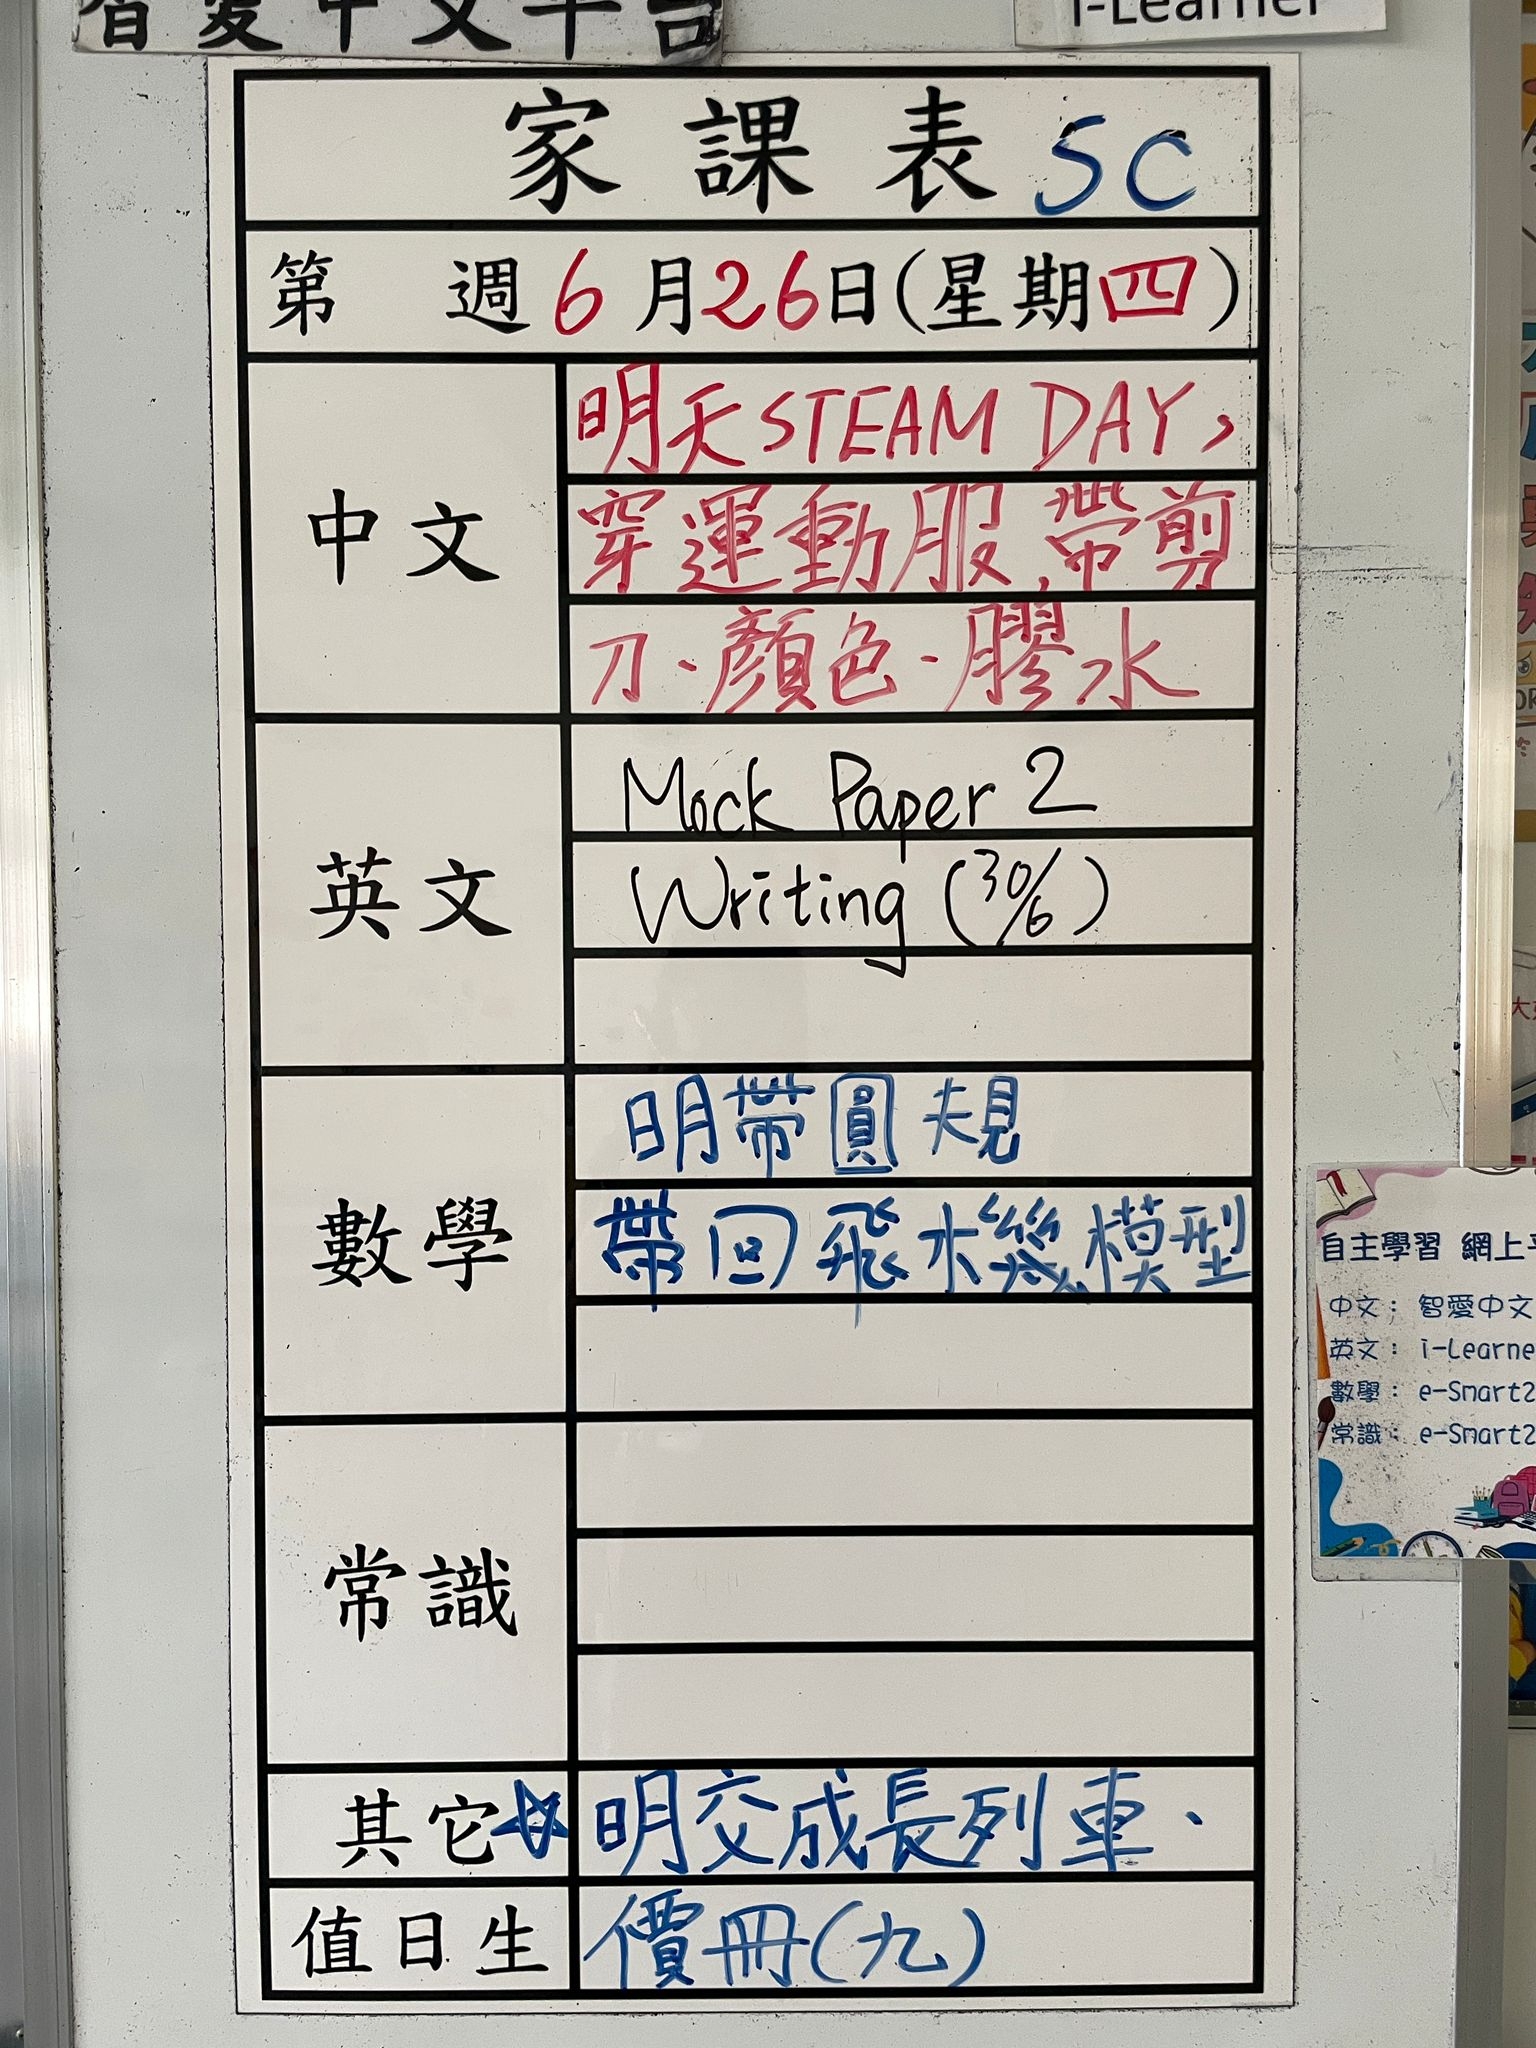 智愛中文平台
i-Learner
家課表 5C
第 週 6月26日(星期四)
中文
明天STEAM DAY，
穿運動服、帶剪
刀、顏色、膠水
英文
Mock Paper 2
Writing (30/6)
數學
明帶圓規
帶回飛機模型
常識
其它☆ 明交成長列車、
值日生 價冊(九)
自主學習 網上
中文： 智愛中文
英文： i-Learne
數學： e-Smart2
常識： e-Smart2